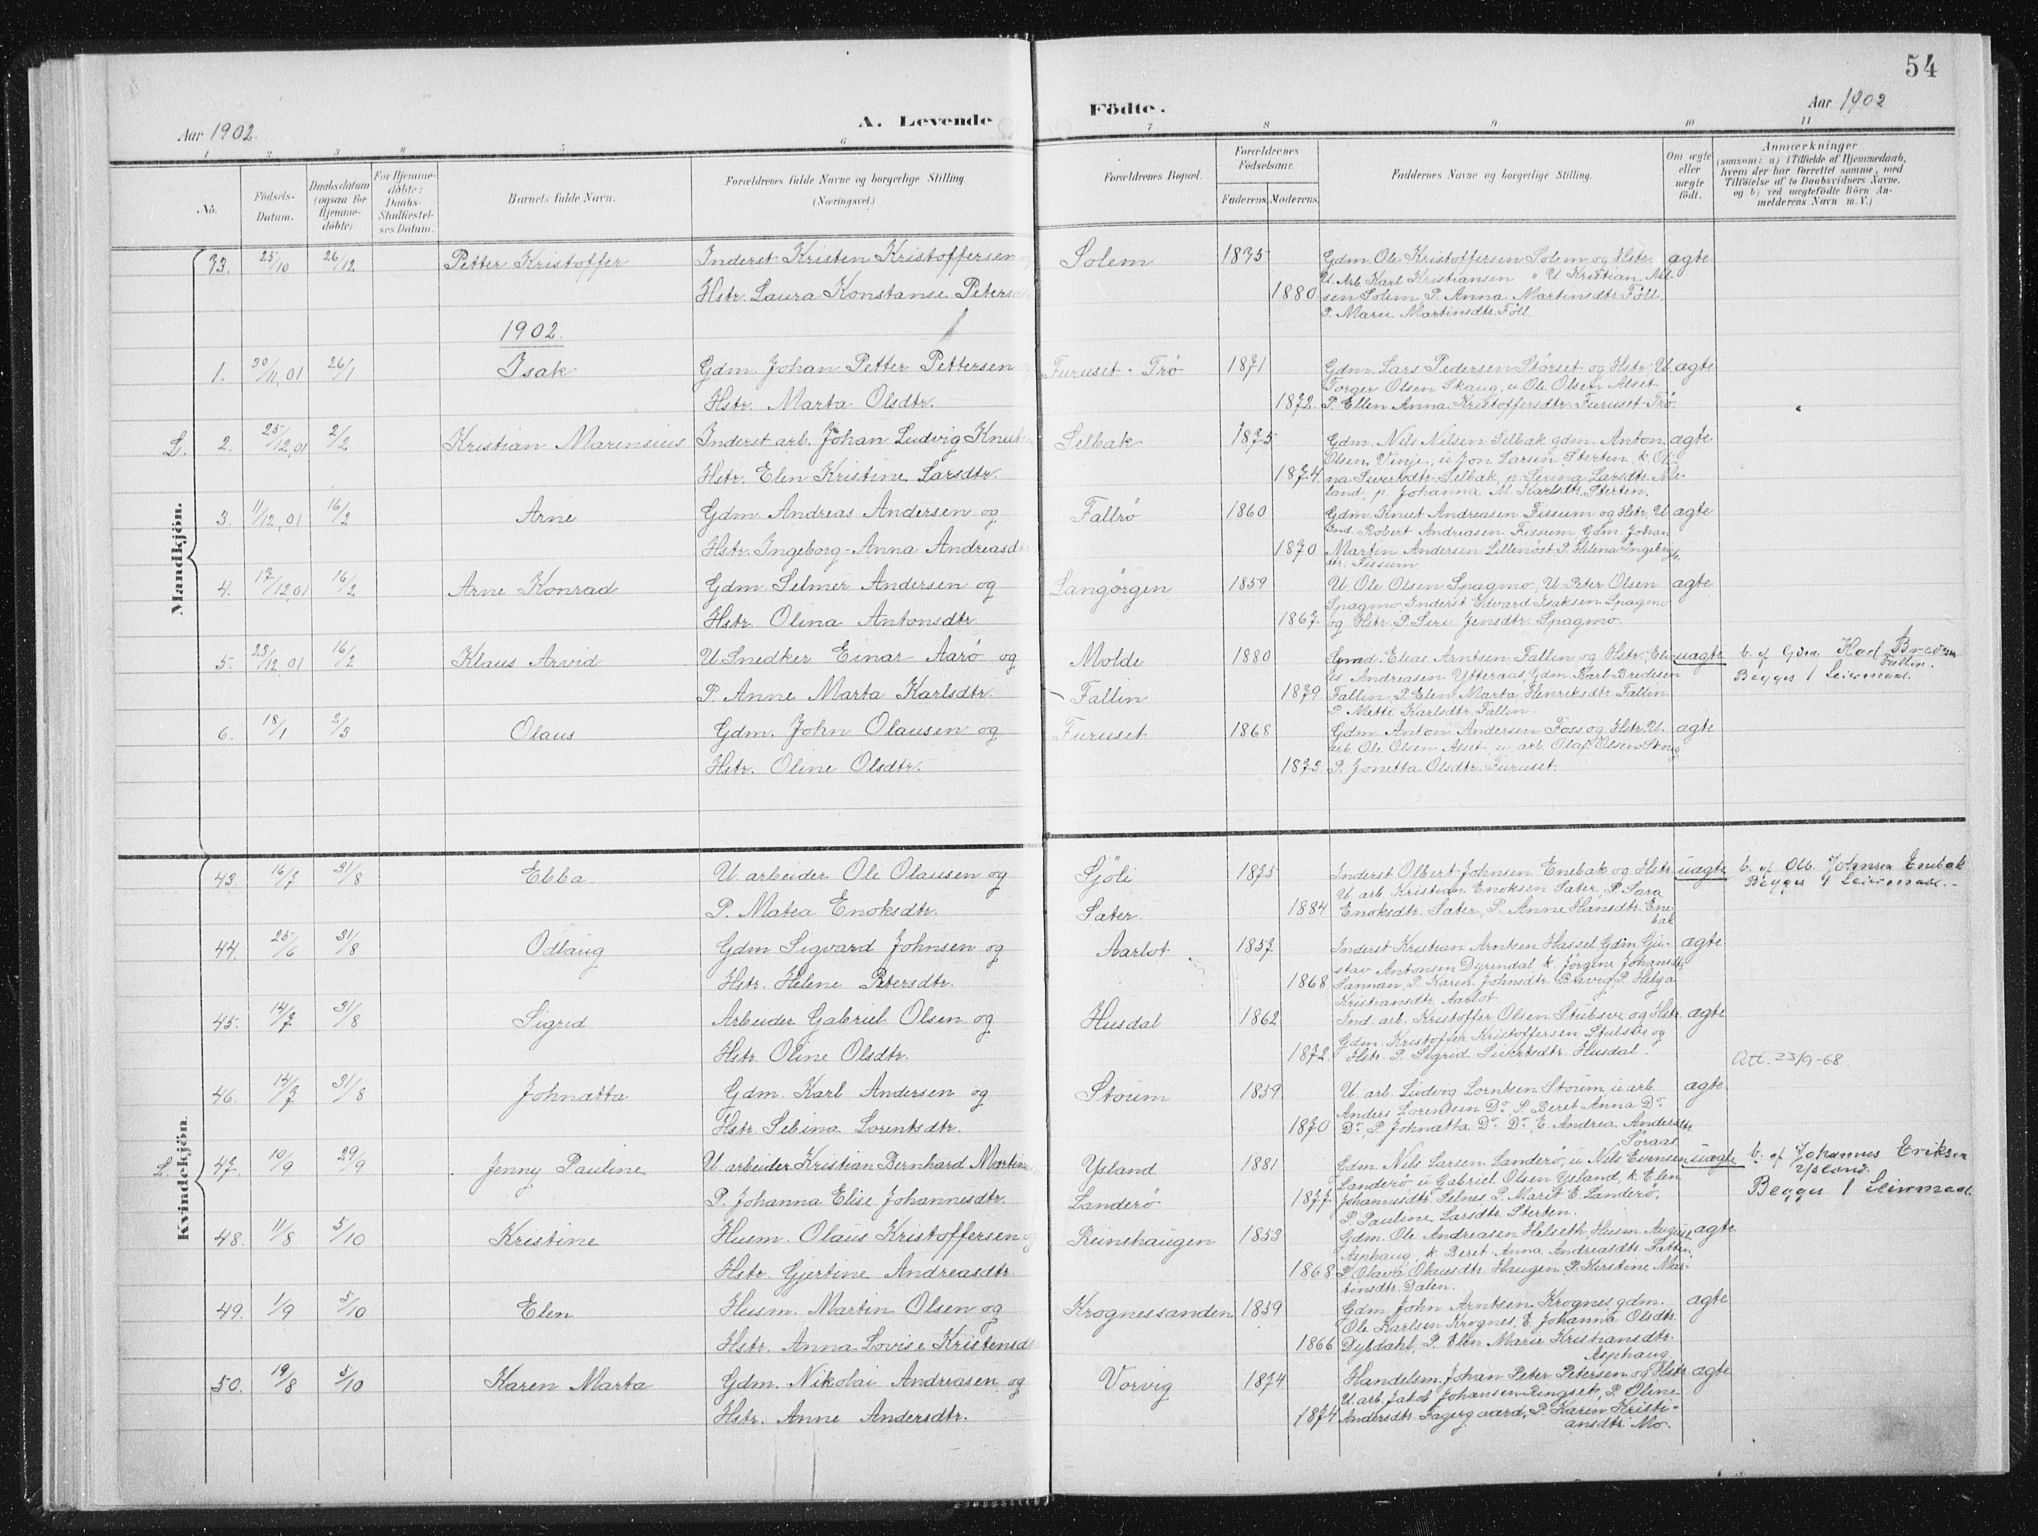 54
Aar 1902.
A. Levende
Födte.
Aar 1902
1 2 3 4 5 6 7 8 9 10 11
No.
Födsels-
Datum.
Daabsdatum
(ogsaa for
Hjemme-
döbte).
For Hjemme-
döbte:
Daabs-
Stadfæstel-
ses Datum.
Barnets fulde Navn.
Forældrenes fulde Navne og borgerlige Stilling
(Næringsvei.)
Forældrenes Bopæl.
Forældrenes
Födselsaar.
Faderens. Moderens.
Faddernes Navne og borgerlige Stilling.
Om ægte
eller
uægte
födt.
Anmærkninger
(saasom: a) i Tilfælde af Hjemmedaab,
hvem der har forrettet samme, med
Tilföielse af to Daabsvidners Navne,
og b) ved uægtefödte Börn An-
melderens Navn m. V.)
Mandkjön.
73. 25/10 26/12 Petter Kristoffer Inderst Kristen Kristoffersen Solem 1875 Gdm. Ole Kristoffersen Solem og Hstr. ægte
U. Arb. Karl Kristiansen " U. Kristian Nil-
Hstr. Laura Konstanse Peters 1880 sen Solem P. Anna Martinsdtr. Föll.
P. Marie Martinsdtr. Föll.
1902.
1. 30/11,01 26/1 Isak Gdm. Johan Petter Pettersen Furuset-Trø 1871 Gdm. Lars Pedersen Størset og Hstr. U. ægte
Torger Olsen Skaug, u. Ole Olsen Alset
Hstr. Marta Olsdtr. 1872. P. Ellen Anna Kristoffersdtr. Furuset-Trø.
L. 2. 25/12,01 2/2 Kristian Marensius Inderst arb. Johan Ludvig Knut Selbak 1875 Gdm. Nils Nilsen Selbak gdm. Anton ægte
Olsen Vinje, u. Jon Larsen Sterten, k. Oli-
Hstr. Elen Kristine Larsdtr. 1874. na Sivertsdtr. Selbak, p. Serina Larsdtr. Me-
land, p. Johanna M. Karlsdtr. Sterten.
3. 11/12,01 16/2 Arne Gdm. Andreas Andersen og Faltrø 1860 Gdm. Knut Andreasen Fissum og Hstr. U. ægte
Ind. Robert Andreasen Fissum Gdm. Johan
Hstr. Ingeborg-Anna Andreasd 1870 Martin Andersen Lillenöst P. Helena Ingebrigt-
dtr. Fissum
4. 17/12,01 16/2 Arne Konrad Gdm. Selmer Andersen og Langørgen 1859 U. Ole Olsen Spagmo, U. Peter Olsen ægte
Spagmo Inderst Edvard Isaksen Spagmo
Hstr. Olina Antonsdtr. 1867. og Hstr. P. Siri Jensdtr. Spagmo.
5. 23/12,01 16/2 Klaus Arvid U. Snedker Einar Aarø og Molde 1880 Gmd. Elias Arntsen Fallin og Hstr., Elin- uægte b. af Gdm. Karl Bredesen
us Andreasen Ytteraas, Gdm. Karl Bredesen Fallin.
P. Anne Marta Karlsdtr. Fallin 1879 Fallin, P. Elen Marta Henriksdtr. Fallin Begges 1 Leiermaal.
P. Mette Karlsdtr. Fallin.
6. 18/1 2/3 Olaus Gdm. John Olausen og Furuset 1868 Gdm. Anton Andersen Foss og Hstr. U. ægte
arb. Ole Olsen Alset u. arb. Olaf Olsen Skaug
Hstr. Oline Olsdtr. 1873. P. Jonetta Olsdtr. Furuset.
Kvindekjön.
43. 16/7 31/8 Ebba U. arbeider Ole Olausen og Sjöli 1875 Inderst Olbert Johnsen Enebak og Hstr. uægte b. af Olb. Johnsen Enebak
U. arb. Kristian Enoksen Sater, P. Sara Begges 1 Leiermaal.
P. Matea Enoksdtr. Sater. 1884 Enoksdtr. Sater, P. Anne Hansdtr. Ene-
bak
44. 25/6 31/8 Odlaug Gdm. Sigvard Johnsen og Aarlot 1857 Inderst Kristian Arntsen Hassel, Gdm. Gu- ægte
stav Antonsen Dyrendal k. Jørgine Johansdtr.
Hstr. Helene Petersdtr. 1868 Sannan, P. Karen Johnsdtr. Bævig, P. Helga
Kristiansdtr. Aarlot.
45. 14/7 31/8 Sigrid Arbeider Gabriel Olsen og Husdal 1862 Ind. arb. Kristoffer Olsen Stubsve og Hstr. ægte
Gdm. Kristoffer Kristoffersen Stubsve og
Hstr. Oline Olsdtr. 1872 Hstr. P. Sigrid Sivertsdtr. Husdal. Att. 23/9-68.
46. 14/7 31/8 Johnatta Gdm. Karl Andersen og Støum 1859 U. arb. Ludvig Lorntsen Støum, u. arb. ægte
Anders Lorentsen Do. P. Beret Anna Do.
Hstr. Sebina Lorentsdtr. 1870 Do. P. Johnatta Do. Do. E. Andrea Andersdtr.
Soraas
L. 47. 10/9 29/9 Jenny Pauline U. arbeider Kristian Bernhard Martin Ysland 1881 Gdm. Nils Larsen Landerö, u. Nils Evensen uægte b. af Johannes Eriksen
Landerö u. Gabriel Olsen Ysland, k. Elen Ysland.
P. Johanna Elise Johannesdtr. Landerö 1877 Johannesdtr. Selnes, P. Marit E. Landerö, Begges 1 Leiermaal
P. Pauline Larsdtr. Sterten.
48. 11/8 5/10 Kristine Husm. Olaus Kristoffersen og Reinshaugen 1853 Gdm. Ole Andreasen Helseth, Husm. August ægte
Asphaug, k. Beret Anna Andreasdtr.
Hstr. Gjertine Andreasdtr. 1868 P. Olava Olausdtr. Haugen, P. Kirstine Mar-
tinsdtr. Dalen.
49. 1/9 5/10 Elen Husm. Martin Olsen og Krognessanden 1859 Gdm. John Arntsen Krognes, gdm. ægte
Ole Karlsen Krognes, E. Johanna Olsdtr.
Hstr. Anna Lovise Kristensd 1866 Dybdahl, P. Elen Marie Kristiansdtr.
Asphaug
50. 19/8 5/10 Karen Marta Gdm. Nikolai Andreasen og Vorvig 1874 Handelsm. Johan Peter Petersen og Hstr. ægte
U. arb. Jakob Johansen Ringset, P. Oline
Hstr. Anne Andersdtr. 1874 Andersdtr. Fagergaard, P. Karen Kristi-
ansdtr. Mo.